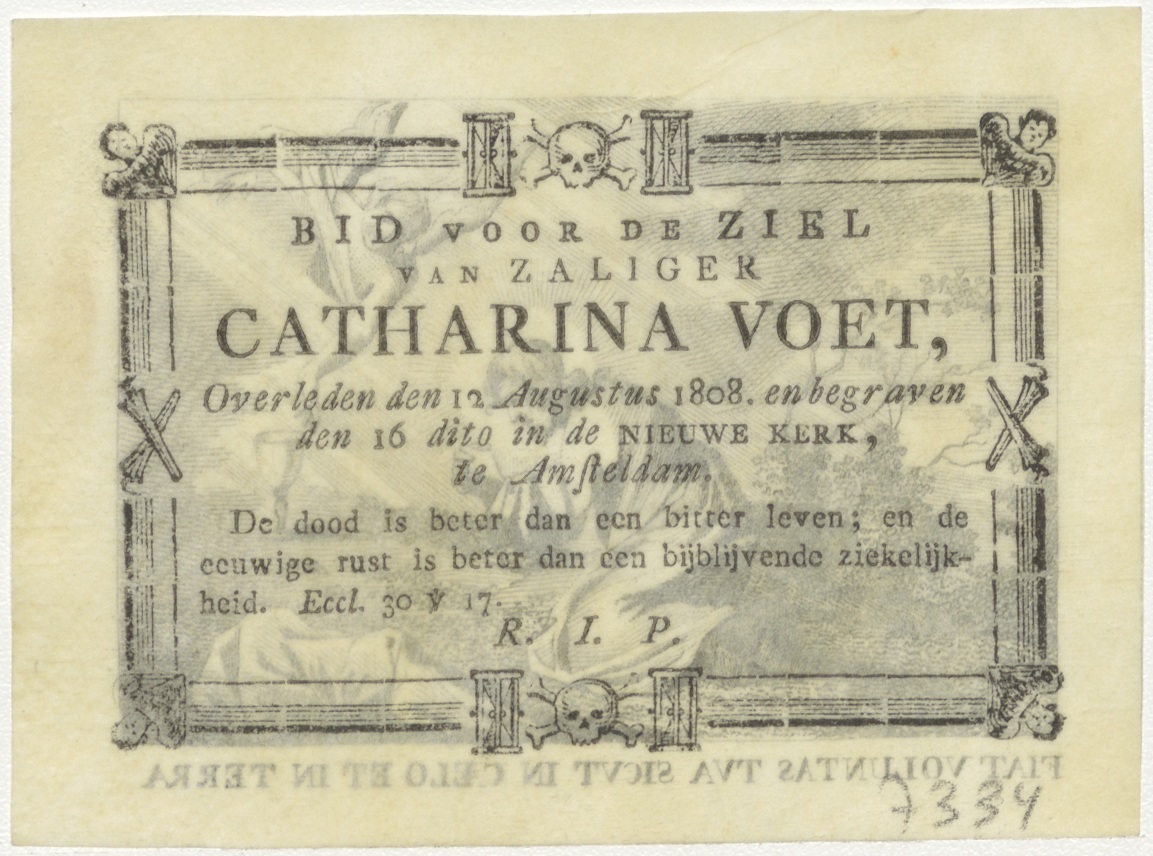 BID VOOR DE ZIEL
VAN ZALIGER
CATHARINA VOET,
Overleden den 12 Augustus 1808. en begraven
den 16 dito in de NIEUWE KERK,
te Amſteldam.
De dood is beter dan een bitter leven; en de
eeuwige rust is beter dan een bijblijvende ziekelijk-
heid. Eccl. 30 ℣ 17.
R. I. P.
FIAT VOLUNTAS TVA SICVT IN CŒLO ET IN TERRA
7334